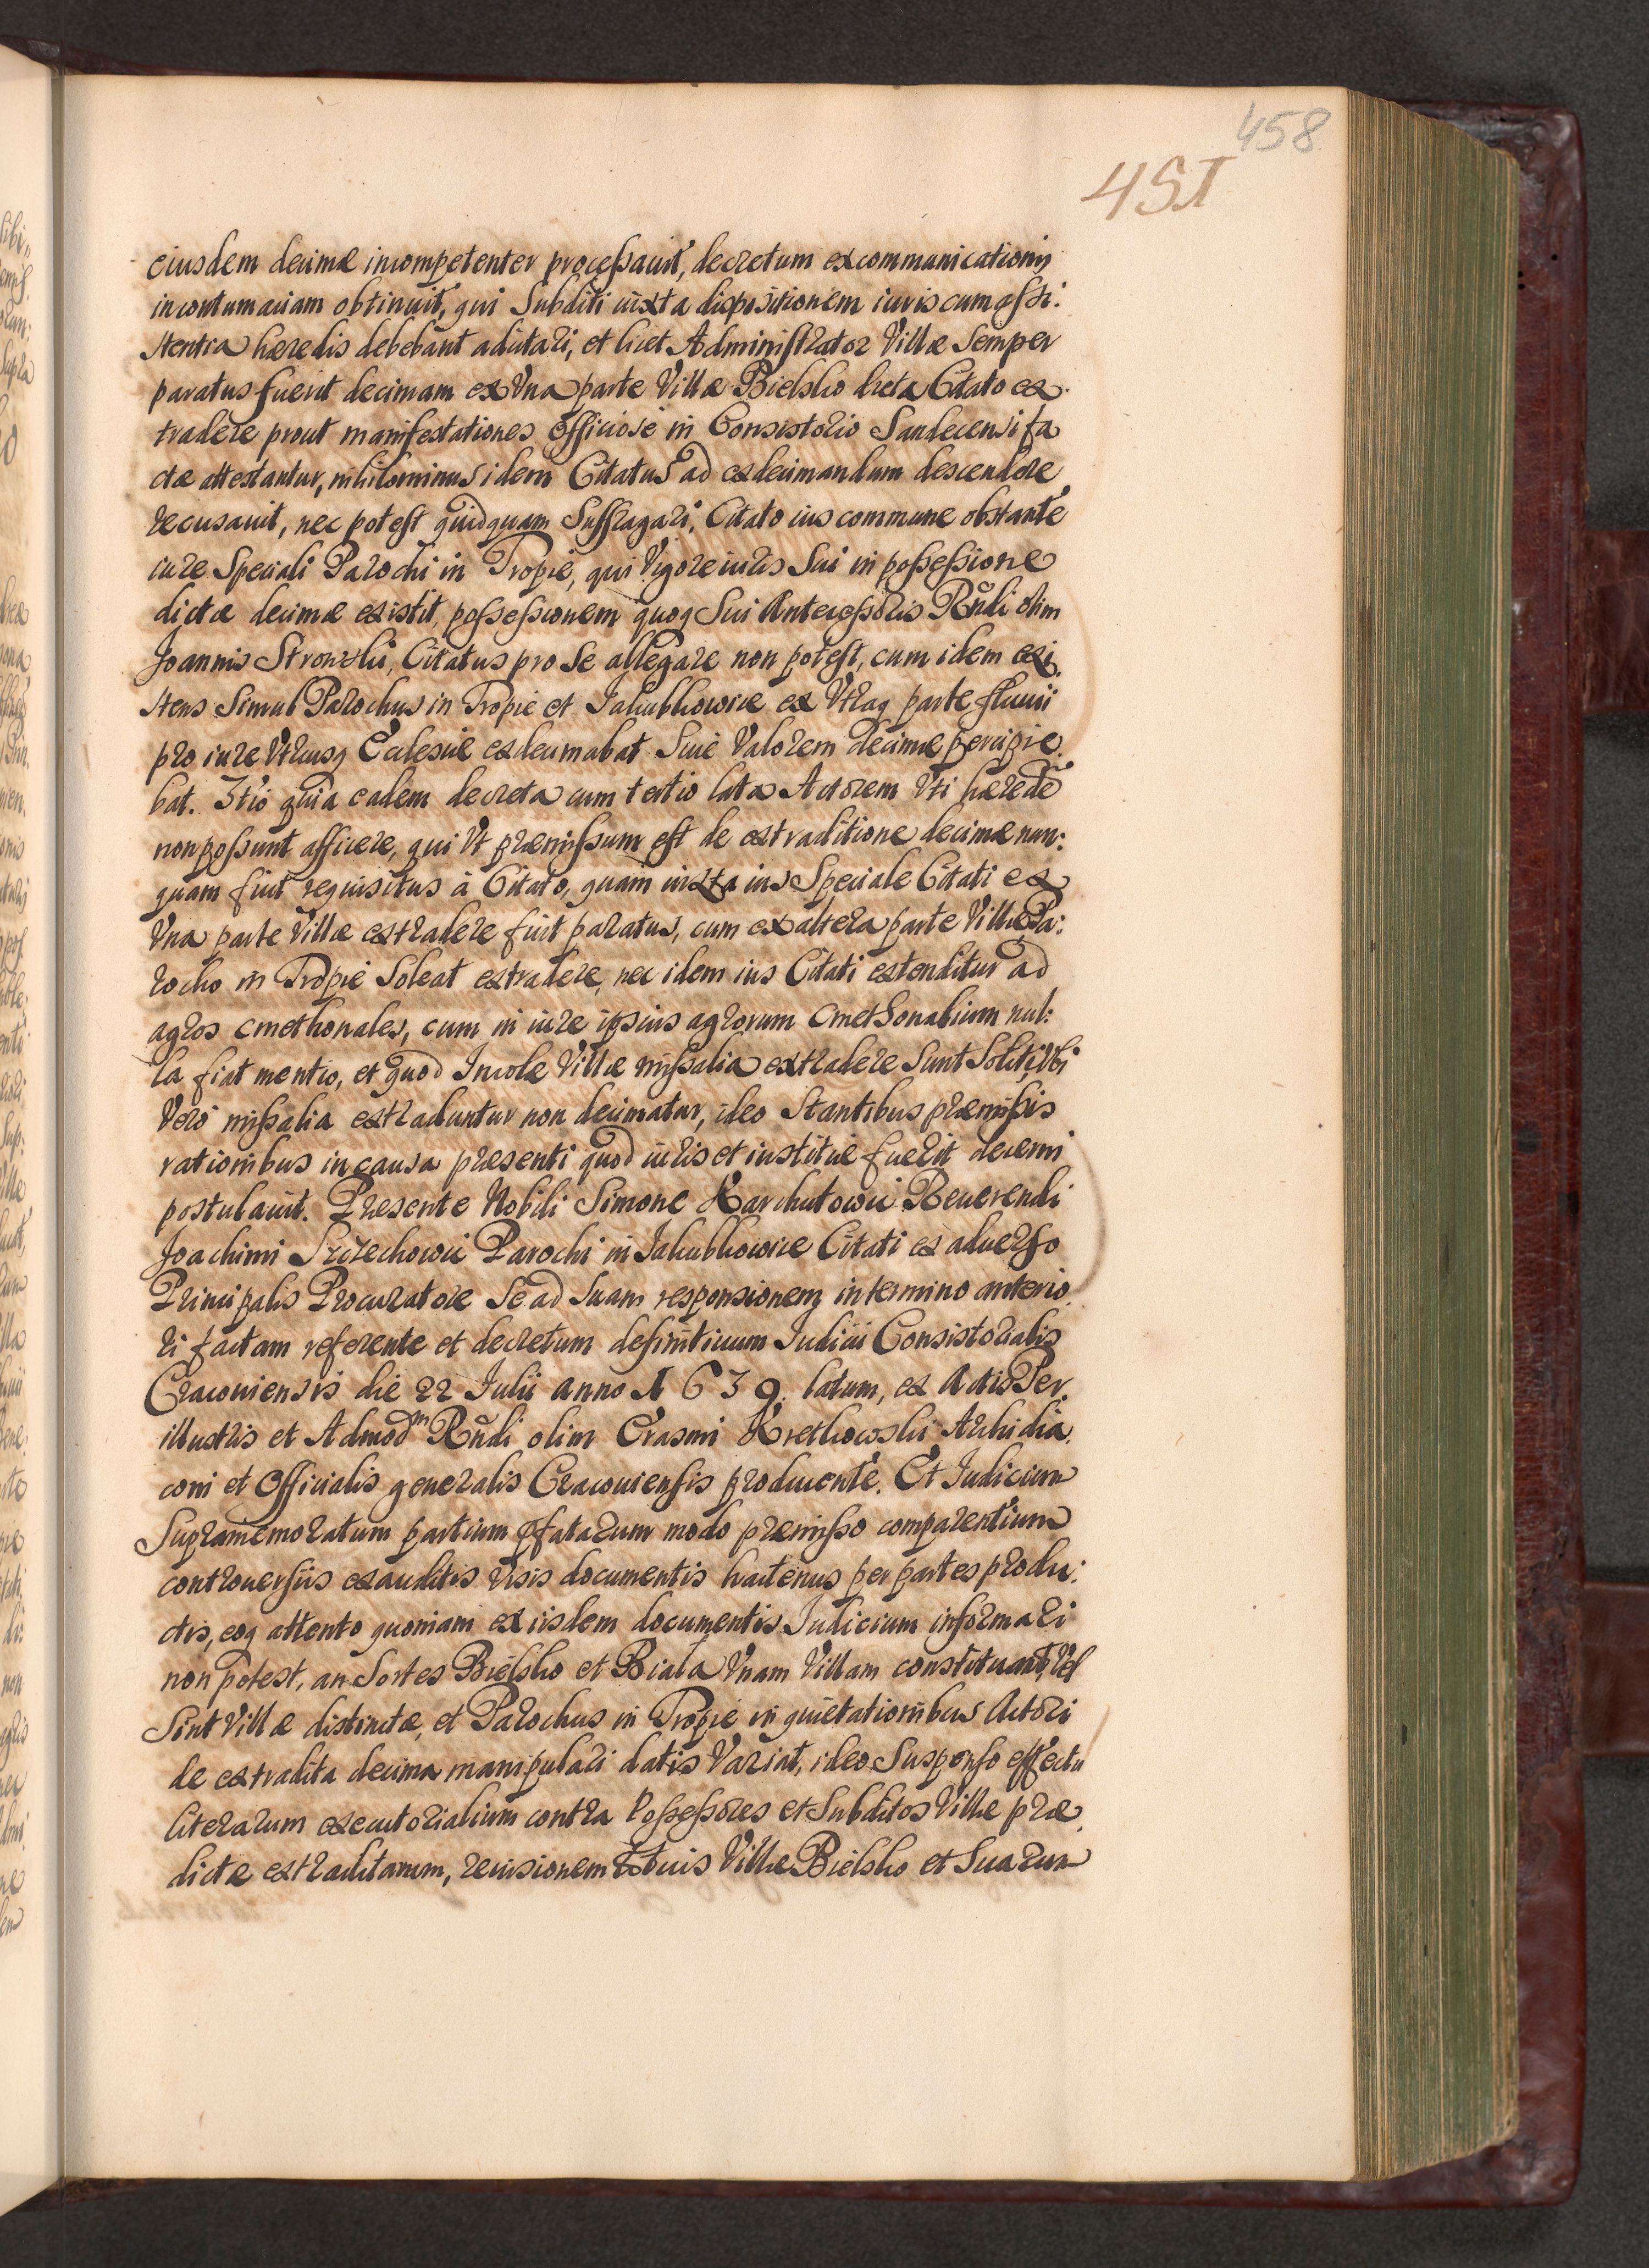 458
451
eiusdem decimæ incompetenter processauit, decretum excommunicationis
in contumatiam obtinuit, qui Subditi iuxta dispositionem iuris cum assi:
stentia hæredis debebant adcitari, et licet Administrator Villæ Semper
paratus fuerit decimam ex Vna parte Villæ Bielsko dicta Citato ex
tradere prout manifestationes officiose in Consistorio Sandecensi fa
ctæ attestantur, nihilominus idem Citatus ad exdecimandum descendere
recusauit, nec potest quidquam Suffragari, Citato ius commune obstante
iure Speciali Parochi in Tropie, qui Vigore iuris Sui in possessione
dictæ decimæ existit, possessionem quoq Sui Antecessoris Rndi olim
Joannis Stronski, Citatus pro Se allegare non potest, cum idem exi
stens Simul Parochus in Tropie et Jakubkowice ex Vtraq parte fluuii
pro iure Vtriusq Ecclesiæ exdecimabat Siue Valorem decimæ percipie
bat. 3tio quia eadem decreta cum tertio lata Actorem Vti hæredē
non possunt afficere, qui Vt præmissum est de extraditione decimæ nun:
quam fuit requisitus à Citato, quam iuxta ius Speciale Citati ex
Vna parte Villæ extradere fuit paratus, cum ex altera parte Villæ Pa:
rocho in Tropie Soleat extradere, nec idem ius Citati extenditur ad
agros cmethonales, cum in iure ipsius agrorum Cmethonalium nul:
la fiat mentio, et quod Incolæ Villæ missalia extradere Sunt Soliti, Vbi
Vero missalia extraduntur non decimatur, ideo Stantibus præmissis
rationibus in causa præsenti quod iuris et iustitiæ fuerit decerni
postulauit. Præsente Nobili Simone Karchutowic Reuerendi
Joachimi Srzechowic Parochi in Jakubkowice Citati ex aduerso
Principalis Procuratore Se ad Suam responsionem in termino anterio
ri factam referente et decretum definitiuum Iudicii Consistorialis
Cracouiensis die 22 Julii anno 1639. latum, ex Actis Per
illustris et Admodm Rndi olim Erasmi Kretkowski Archidia
coni et Officialis generalis Cracouiensis producente. Et Iudicium
Supramemoratum partium pfatarum modo præmisso comparentium
controuersiis exauditis Visis documentis hactenus per partes produ:
ctis, eoq attento quoniam ex iisdem documentis Iudicium informari
non potest, an Sortes Bielsko et Biała Vnam Villam constituant, Vel
Sint Villæ distinctæ, et Parochus in Tropie in quietationibus Actori
de extradita decima manipulari datis Variat, ideo Suspenso effectu
literarum executorialium contra Possessores et Subditos Villæ præ
dictæ extraditarum, reuisionem totius Villæ Bielsko et Suarum